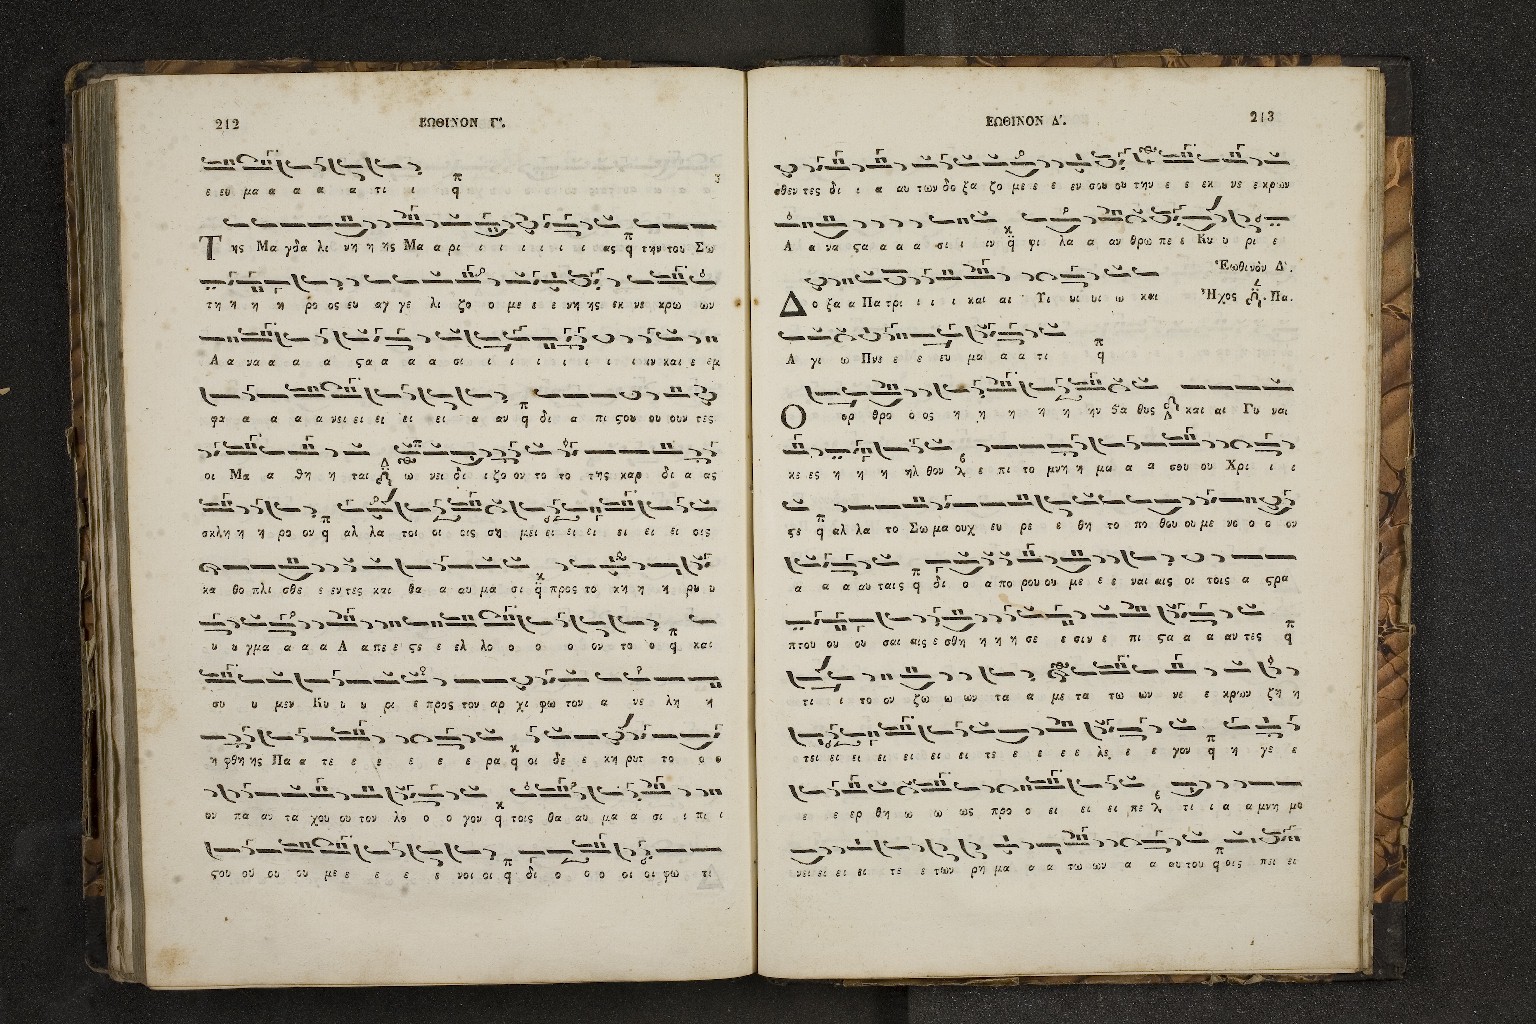 212
ΕΩΘΙΝΟΝ Γ'.
ε ευ μα α α α α τι ι π q
Της Μα γδα λι νη η ης Μα α ρι ι ι ι ι ι ι ας q την του Σω
τη η η η ρο ος ευ αγ γε λι ζο ο με ε ε νη ης εκ νε κρω ων
Α α να α α α ϛα α α α σι ι ι ι ι ι ι ι ιν και ε εμ
φα α α α α νει ει ει ει ει ει α αν q δι α πι ϛου ου ουν τες
οι Μα α θη η ται ω νει δι ιζο ον το το της καρ δι α ας
σκλη η η ρο ον q αλ λα τοι οι οις ση μει ει ει ει ει ει ει οις
κα θο πλι σθε ε εν τες και θα α αυ μα σι q προς το κη η η ρυ υ
υ υ γμα α α α Α α πε ε ϛε ε ελ λο ο ο ο ο ον το ο q και
συ υ μεν Κυ υ υ ρι ε προς τον αρ χι φω τον α νε λη η
η φθη ης Πα α τε ε ε ε ε ε ε ρα q οι δε ε κη ρυτ το ο ο
ον πα αν τα χου ου τον λο ο ο γον q τοις θα αυ μα α σι ι πι ι
ϛου ου ου ου ου με ε ε ε ε ε νοι οι q δι ο ο ο οι οι φω τι
ΕΩΘΙΝΟΝ Δ'.
213
σθεν τες δι ι α αυ των δο ξα ζο με ε ε ε εν σου ου την ε ε εκ νε ε κρων
Α α να ϛα α α α σι ι ιν q φι λα α αν θρω πε ε Κυ υ ρι ε
Ἑωθινὸν Δ'.
Δο ξα α Πα τρι ι ι ι και αι Υι υι υι ω και
Ἦχος Πα.
Α γι ω Πνε ε ε ευ μα α α τι π q
Ο ορ θρο ο ος η η η η η ην βα θυς και αι Γυ ναι
κε ες η η η ηλ θον ε πι το μνη η μα α α σου ου Χρι ι ι
ϛε q αλ λα το Σω μα ουχ ευ ρε ε θη το πο θου ου με νο ο ο ον
α α α αυ ταις q δι ο α πο ρου ου με ε ε ναι αις οι τοις α ϛρα
πτου ου ου σαι αις ε σθη η η η σε ε σιν ε πι ϛα α α αν τες q
τι ι το ον ζω ω ων τα α με τα τω ων νε ε κρων ζη η
τει ει ει ει ει ει ει ει τε ε ε ε ε λε ε ε γον q η γε ε
ε ε ερ θη ω ω ως προ ο ει ει ει πε τι ι α α μνη μο
νει ει ει ει ει τε ε των ρη μα α α τω ων α α αυ του q οις πει ει